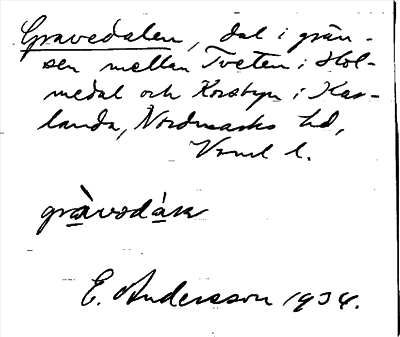 Gravedalen, dal i grän-
sen mellan Tveten i Hol-
medal och Korsbyn i Kar-
landa, Nordmarks hd,
Vrml l.
gràvədáλ
E. Andersson 1934.